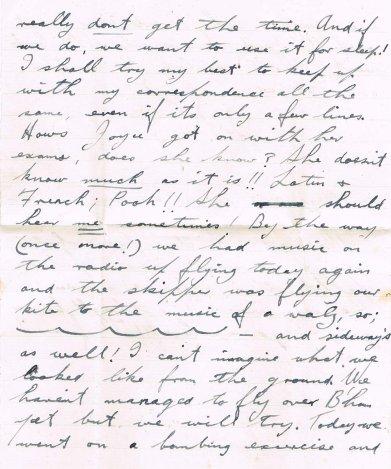 really dont get the time. And if
we do, we want to use it for sleep!
I shall try my best to keep up
with my correspondence all the
same, even if its only a few lines.
Hows Joyce got on with her
exams, does she know? She doesn't
know much as it is!! Latin &
French; Pooh!! She should
hear me sometimes! By the way
(once more!) we had music on
the radio up flying today again
and the skipper was flying our
kite to the music of a waltz, so;
— and sideways
as well! I can't imagine what we
looked like from the ground. We
haven't managed to fly over B'ham
yet but we will try. Today we
went on a bombing exercise and